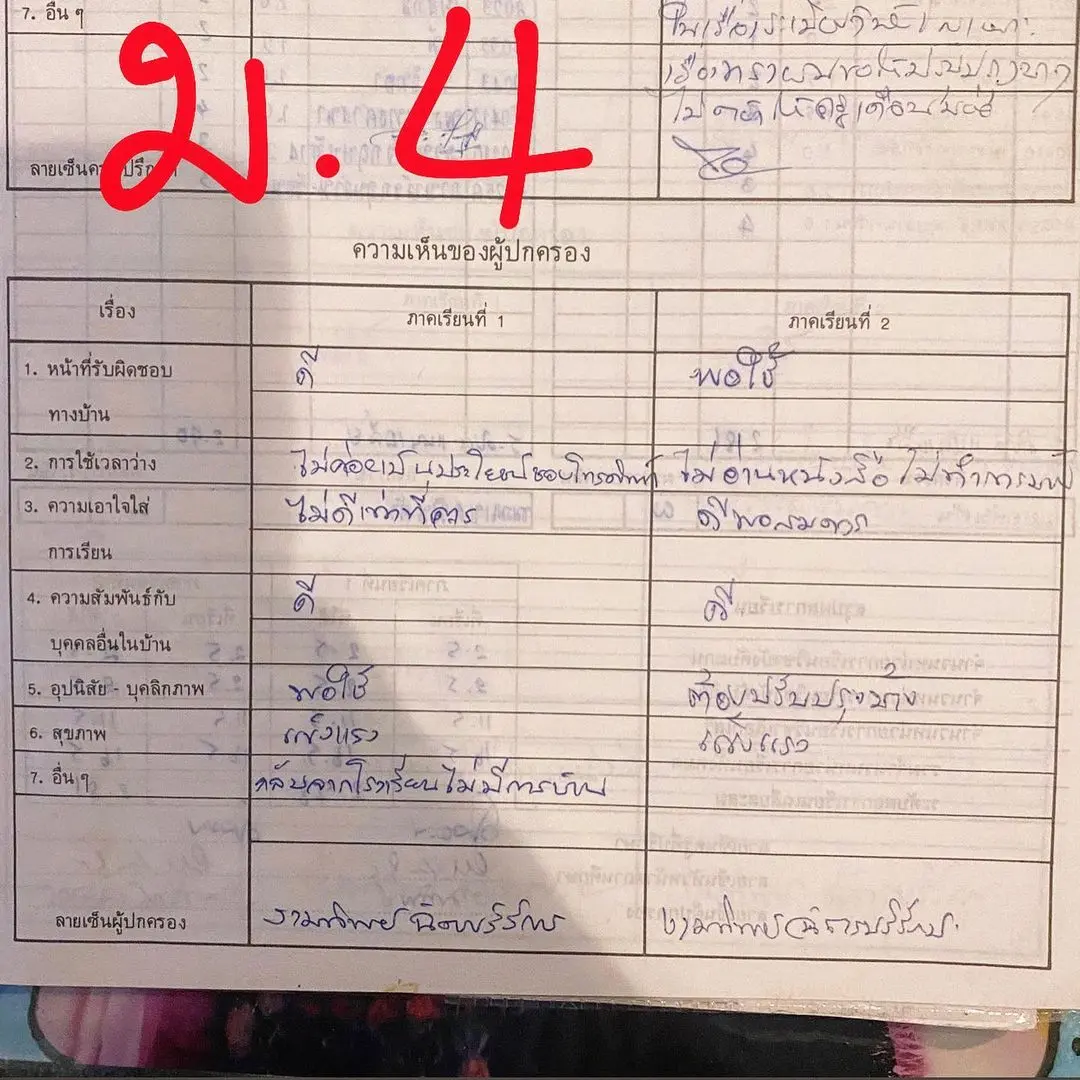 7. อื่น ๆ
ในเรื่องระเบียบวินัย
เรื่องทรงผมขอให้ปรับปรุง
ไม่ต้องให้ครูเตือนบ่อย
ม.4
ลายเซ็น
ความเห็นของผู้ปกครอง
เรื่อง ภาคเรียนที่ 1 ภาคเรียนที่ 2
1. หน้าที่รับผิดชอบ ดี พอใช้
ทางบ้าน
2. การใช้เวลาว่าง ไม่ค่อยเป็นประโยชน์ ชอบโทรศัพท์ ไม่อ่านหนังสือ ไม่ทำการบ้าน
3. ความเอาใจใส่ ไม่ดีเท่าที่ควร ดีพอสมควร
การเรียน
4. ความสัมพันธ์กับ ดี ดี
บุคคลอื่นในบ้าน
5. อุปนิสัย - บุคลิกภาพ พอใช้ ต้องปรับปรุงบ้าง
6. สุขภาพ แข็งแรง แข็งแรง
7. อื่น ๆ กลับจากโรงเรียนไม่มีการบ้าน
ลายเซ็นผู้ปกครอง งามทิพย์ งามทิพย์